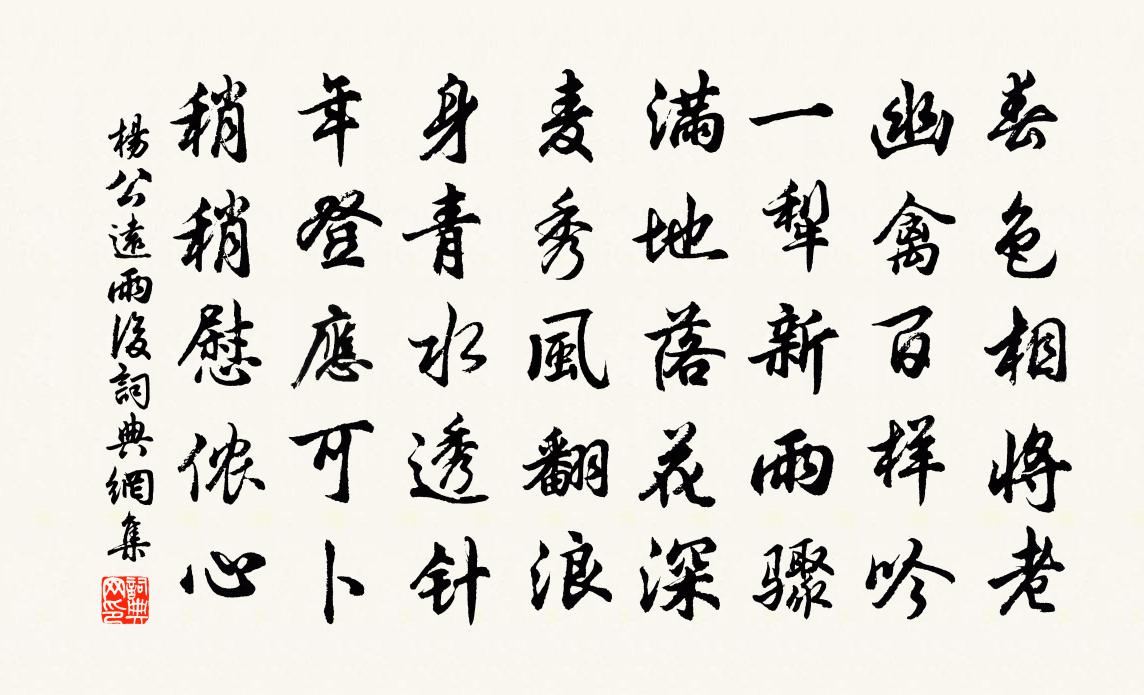 春色相将老
幽禽百样吟
一犁新雨骤
满地落花深
麦秀風翻浪
身青水透针
年登應可卜
稍稍慰侬心
楊公遠雨後詞典網集
詞典网印